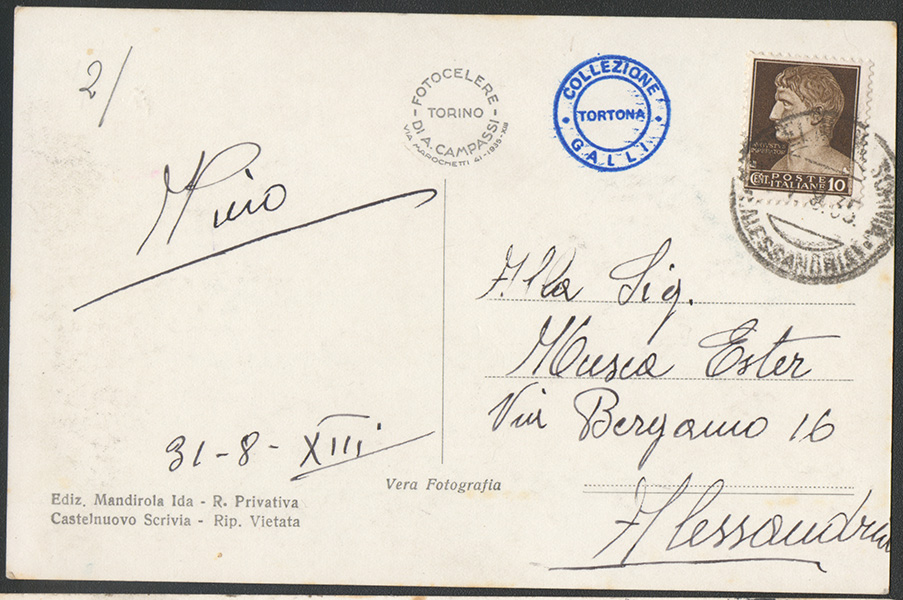 2/
FOTOCELERE
TORINO
DI A. CAMPASSI
VIA MAROCHETTI 41-1935-XIII
COLLEZIONE
TORTONA
GALLI
POSTE
CENT. ITALIANE 10
ALESSANDRIA
Alla Sig.
Musca Ester
Via Bergamo 16
Alessandria
31-8-XIII
Vera Fotografia
Ediz. Mandirola Ida - R. Privativa
Castelnuovo Scrivia - Rip. Vietata